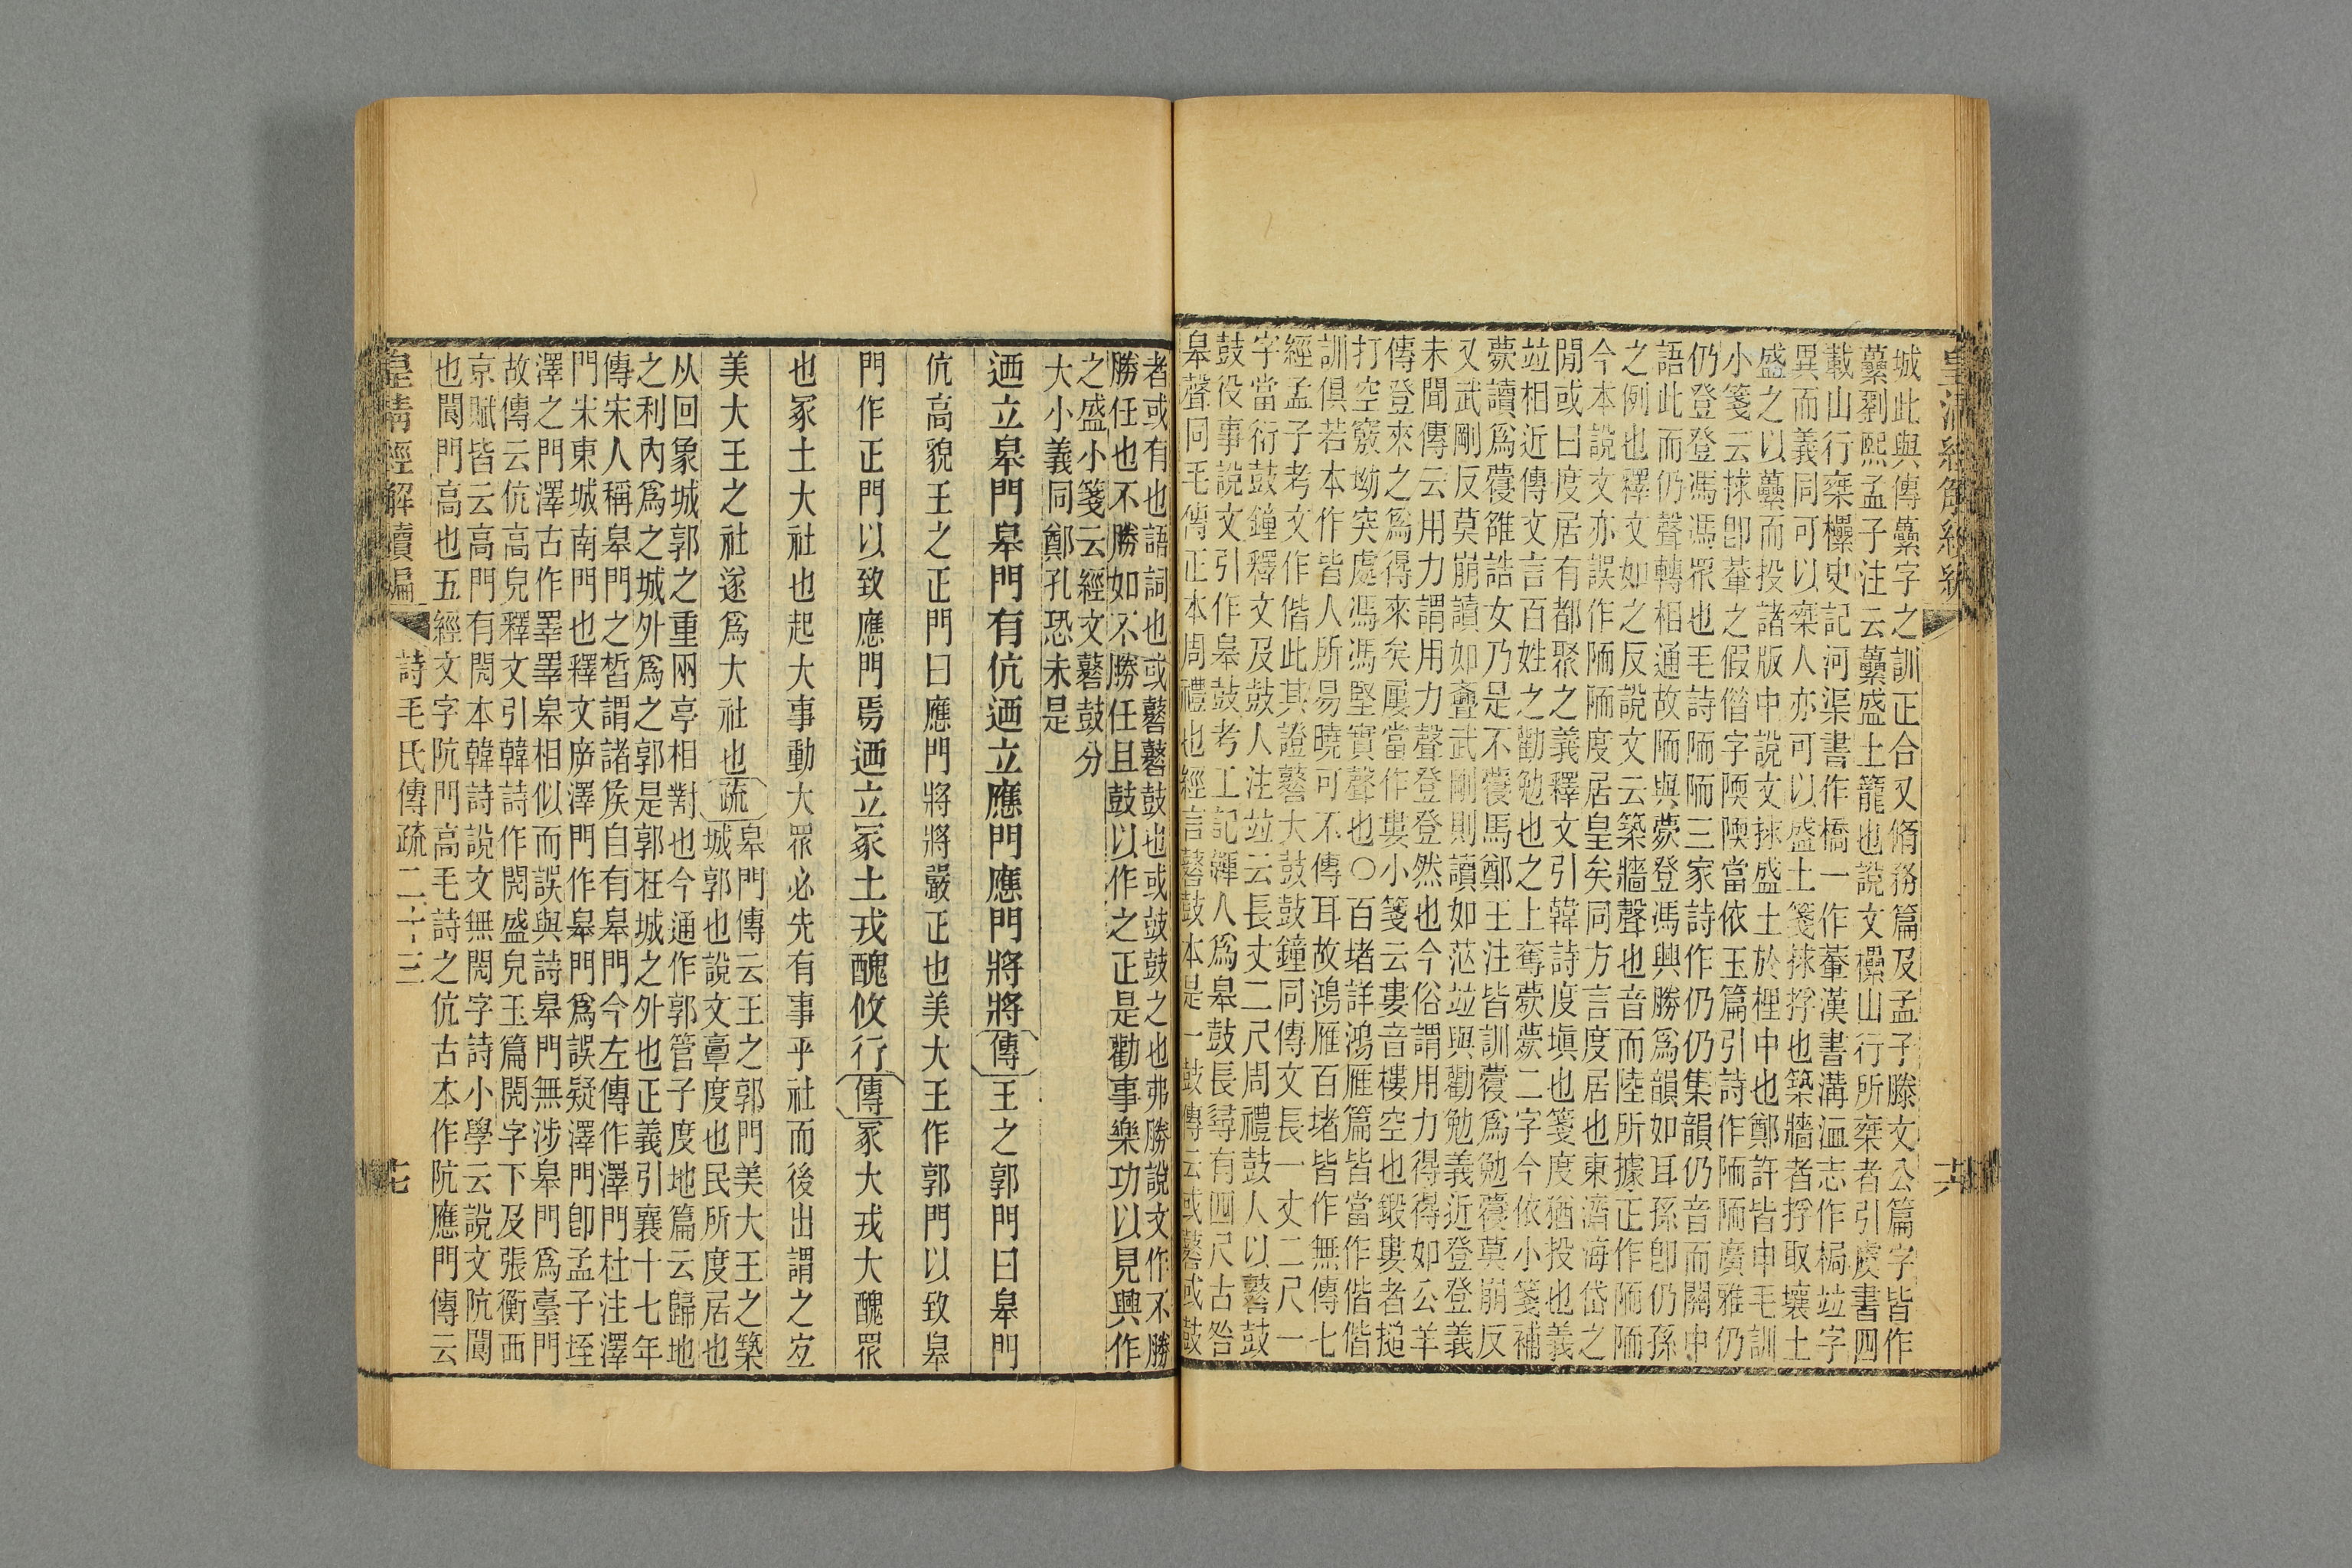 城此與傳虆字之訓正合又脩務篇及孟子滕文公篇字皆作
虆劉熙孟子注云虆盛土籠也說文欙山行所桒者引虞書四
載山行桒欙史記河渠書作橋一作輂漢書溝洫志作梮竝字
異而義同可以桒人亦可以盛土箋捄捊也築牆者捊取壤土
盛之以虆而投諸版中說文捄盛土於梩中也鄭許皆申毛訓
小箋云捄卽輂之假偕字陾陾當依玉篇引詩作陑陑廣雅仍
仍登登馮馮眾也毛詩陑陑三家詩作仍仍集韻仍音而關中
語此而仍聲轉相通故陑與薨登馮興勝爲韻如耳孫卽仍孫
之例也釋文如之反說文云築牆聲也音而陸所據正作陑陑
今本說文亦誤作陑陑度居皇矣同方言度居也東濟海岱之
閒或曰度居有都聚之義釋文引韓詩度塡也箋度猶投也義
竝相近傳文言百姓之勸勉也之上奪薨薨二字今依小箋補
薨讀爲薨雒誥女乃是不薧馬鄭王注皆訓薧爲勉薧莫崩反
又武剛反莫崩讀如瞢武剛則讀如茫竝與勸勉義近登登義
未聞傳云用力謂用力聲登登然也今俗謂用力得得如公羊
傳登來之爲得來矣屢當作婁小箋云婁音樓空也鍛婁者搥
打空竅坳突處馮馮堅實聲也○百堵詳鴻雁篇皆當作偕偕
訓俱若本作皆人所易曉可不傳耳故鴻雁百堵皆作無傳七
經孟子考文作偕此其證鼛大鼓鼓鐘同傳文長一丈二尺一
字當衍鼓鐘釋文及鼓人注竝云長丈二尺周禮鼓人以鼛鼓
鼓役事說文引作皋鼓考工記韗人爲皋鼓長尋有四尺古咎
皋聲同毛傳正本周禮也經言鼛鼓本是一鼓傳云或鼛或鼓
者或有也語詞也或鼛鼛鼓也或鼓鼓之也弗勝說文作不勝
勝任也不勝如不勝任且鼓以作之正是勸事樂功以見興作
之盛小箋云經文鼛鼓分
大小義同鄭孔恐未是
迺立皋門皋門有伉迺立應門應門將將傳王之郭門曰皋門
伉高貌王之正門曰應門將將嚴正也美大王作郭門以致皋
門作正門以致應門焉迺立冢土戎醜攸行傳冢大戎大醜眾
也冢土大社也起大事動大眾必先有事乎社而後出謂之宜
美大王之社遂爲大社也疏皋門傳云王之郭門美大王之築
城郭也說文𩫖度也民所度居也
从回象城郭之重兩亭相對也今通作郭管子度地篇云歸地
之利內爲之城外爲之郭是郭在城之外也正義引襄十七年
傳宋人稱皋門之晳謂諸矦自有皋門今左傳作澤門杜注澤
門宋東城南門也釋文㡿澤門作皋門爲誤疑澤門卽孟子垤
澤之門澤古作睪睪皋相似而誤與詩皋門無涉皋門爲臺門
故傳云伉高皃釋文引韓詩作閌盛皃玉篇閌字下及張衡西
京賦皆云高門有閌本韓詩說文無閌字詩小學云說文阬閬
也閬門高也五經文字阬門高毛詩之伉古本作阬應門傳云
皇清經解續編 詩毛氏傳疏二十三 七